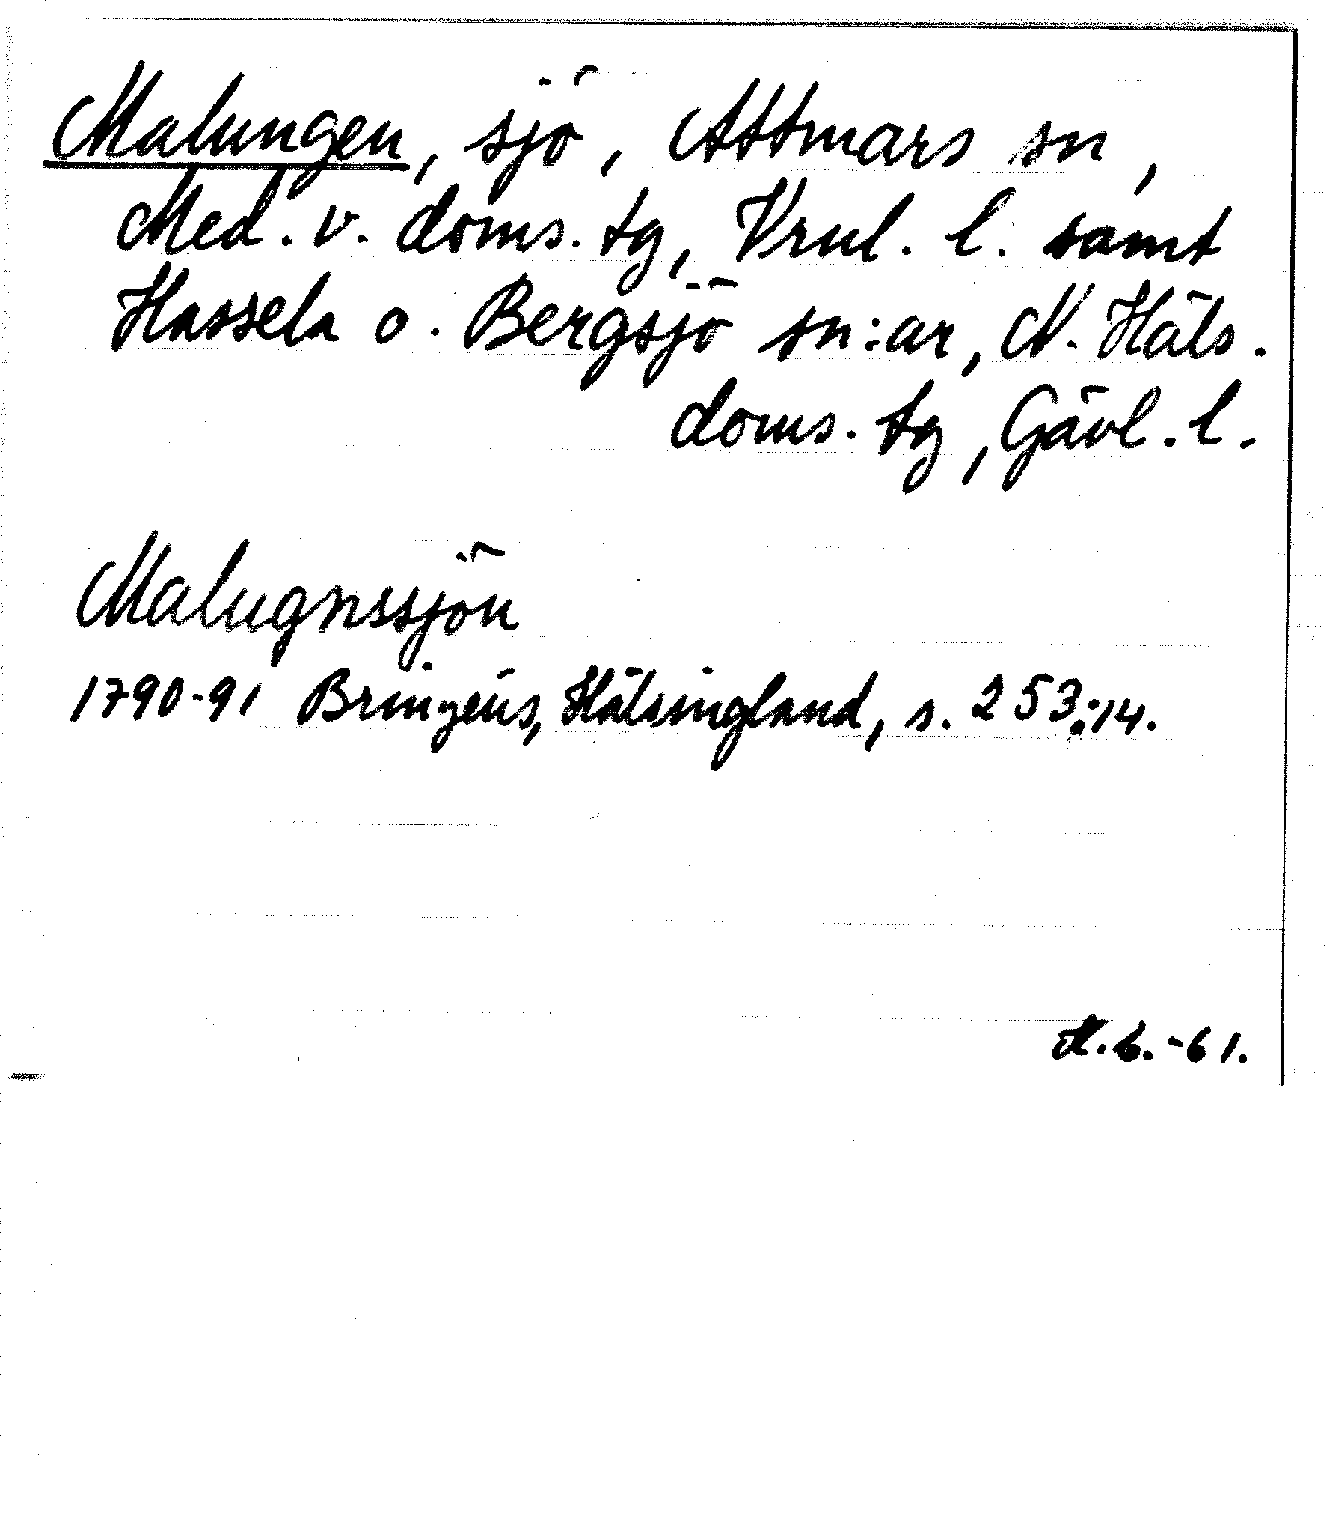 Malungen, sjö, Attmars sn,
Med. v. doms. tg, Vrnl. l. samt
Hassela o. Bergsjö sn:ar, N. Häls.
doms. tg, Gävl. l.
Malugnssjön
1790-91 Bringéus, Hälsingland, s. 253:14.
-61.